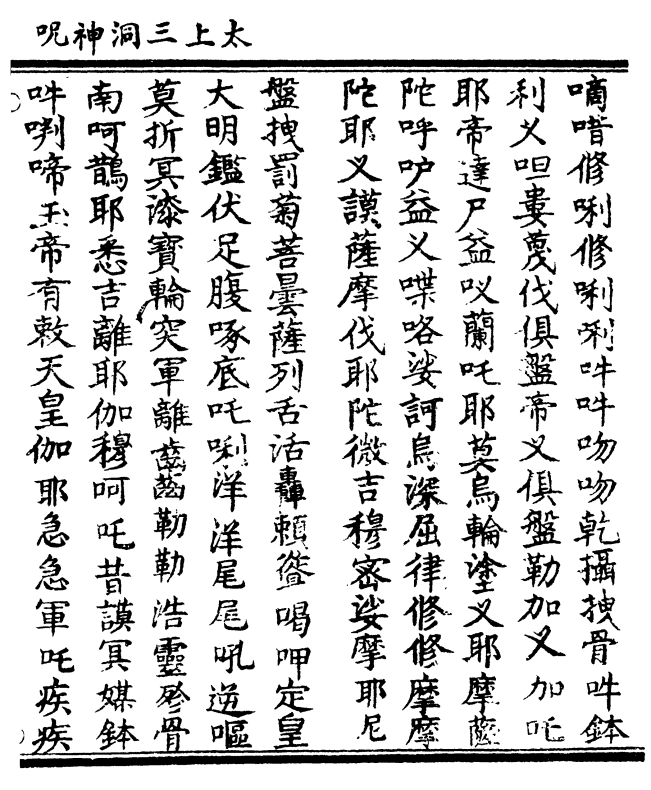 太上三洞神呪
嘀唶修唎修唎唎吽吽吻吻乾攝拽骨吽鉢
利义呾婁蔑伐俱盤帝义俱盤勒加义加吒
耶帝達尸益㕛蘭吒耶莫烏輪塗义耶摩薩
陀呼咿益义喋咯娑訶烏深屈律修修摩摩
陀耶义謨薩摩伐耶陀微吉穆密娑摩耶尼
盤拽罰菊菩曇薩列舌活轟賴聳喝呷定皇
大明鑑伏足腹啄底吒唎洋洋尾尾吼逆嘔
莫折冥漆寶輪突軍離齒齒勒勒浩靈骨
南呵鵲耶悉吉離耶伽穆呵吒昔謨冥媒鉢
吽唎啼玉帝有敕天皇伽耶急急軍吒疾疾